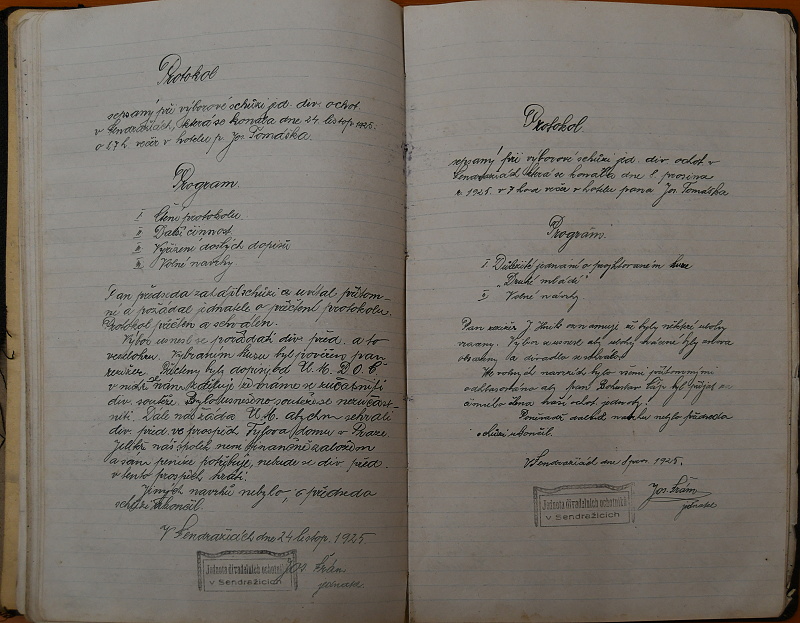 Protokol
sepsaný při výborové schůzi jed. div. ochot.
v Sendražicích, která se konala dne 24. listop. 1925.
o 17 h. večer v hotelu p. Jos. Tomáška.
Program.
I Čtení protokolu
II Další činnost
III Vyřízení došlých dopisů
IV Volné návrhy
Pan předseda zahájil schůzi a uvítal přítom-
né a požádal jednatele o přečtení protokolu.
Protokol přečten a schválen.
Výbor usnesl se pořádati div. před. a to
veselohru. Vybráním kusu byl pověřen pan
režiser. Přečteny byly dopisy od Ú. M. D. O. Č
v nichž se nám sděluje
div. soutěže. Bylo usneseno soutěže se nezúčast-
niti. Dále nás žádá Ú. M. abychom sehráli
div. před. ve prospěch Tylova domu v Praze.
Jelikož náš spolek není finančně založen
a sám peníze potřebuje, nebude se div. před.
v tento prospěch hráti.
Jiných návrhů nebylo, a předseda
schůzi skončil.
V Sendražicích dne 24 listop. 1925.
Jednota divadelních ochotníků
v Sendražicích
Jos Šrám
jednatel
Protokol.
sepsaný při výborové schůzi jed. div. ochot. v
Sendražicích která se konala dne 8. prosince
r. 1925. v 7 hod večer v hotelu pana Jos. Tomáška
Program
I Důležité jednání o projektovaném kuse
„Druhé mládí"
II Volné návrhy
Pan režiser J. oznamuje že byly některé úlohy
vráceny. Výbor se usnesl aby úlohy vrácené byly znova
obsazeny a divadlo
Ve volných návrzích bylo všemi přítomnými
odhlasováno aby pan Bohuslav byl přijat za
člena naší ochot. jednoty.
Poněvadž návrhu nebylo předseda
schůzi ukončil.
V Sendražicích dne 8 pros. 1925.
Jednota divadelních ochotníků
v Sendražicích
Jos. Šrám
jednatel